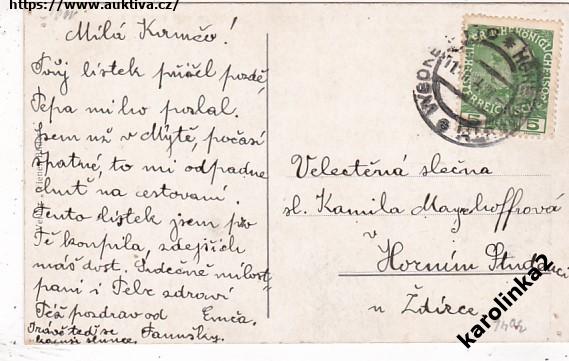 https://www.auktiva.cz/
Milá Krmčo!
Tvůj lístek přišel pozdě,
Pepa mi ho poslal.
Jsem už v Mýtě, počasí
špatné, to mi odpadne
chuť na cestovaní.
Tento lístek jsem pro
Tě koupila, zdejších
máš dost. Srdečně milost-
paní i Tebe zdraví
Též pozdrav od Fanušky.
Emča.
Právě teď se
slunce.
VYSOKÉ
Velectěná slečna
sl. Kamila Mayerhoffrová
v
Horním Studenci
u Ždírce
karolinka2